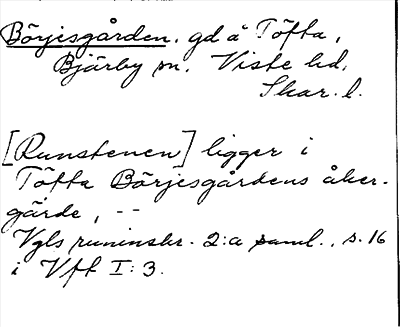 Börjesgården, gd å Töfta,
Bjärby sn. Viste hd.
Skar. l.
[Runstenen] ligger i
Töfta Börjesgårdens åker-
gärde, --
Vgls runinskr. 2:a saml., s. 16
i Vft I:3.